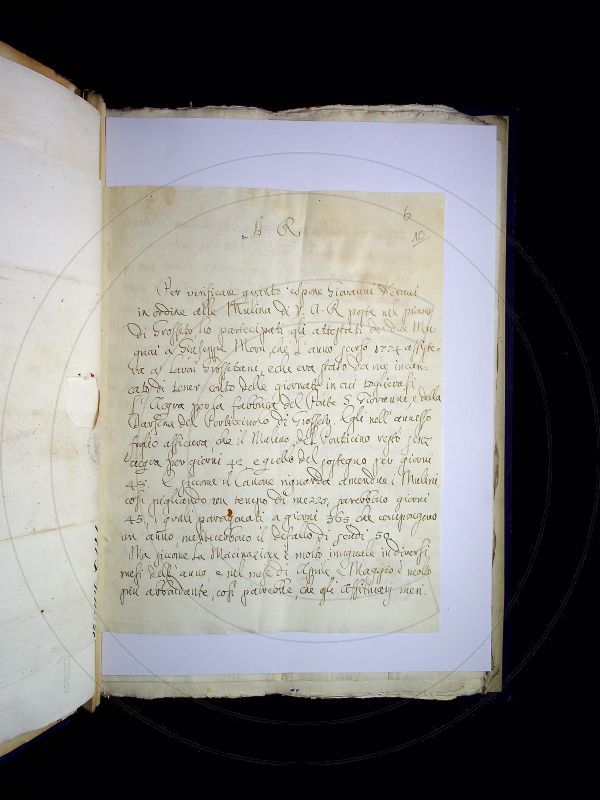 6
10
A. R.
Per verificare quanto espone Giovanni
in ordine alle Mulina di V. A. R. poste nel piano
di Grosseto ho partecipati gli attestati de due Mu:
gnai a Giuseppe Morri, che l'anno scorso 1774 assiste:
va a Lavori Grossetani, e che era stato da me incari:
cato di tener conto delle giornate in cui toglievasi
l'Acqua per la fabbrica del Ponte S. Giovanni, e della
Darsena del Porticciuolo di Grosseto. Egli nell'annesso
figlio assicura che il Mulino del Ponticino restò senz'
acqua per giorni 42, e quello del sostegno per giorni
48. E siccome il Canone riguarda amendue i Mulini
così pigliando un tempo di mezzo, sarebbono giorni
45, i quali paragonati a giorni 365 che compongono
un anno, meriterebbono il defalco di scudi 59.
Ma siccome la Macinazione è molto inuguale in diversi
mesi dell'anno, e nel mese di Aprile e Maggio è molto
più abbondante, così parrebbe, che gli